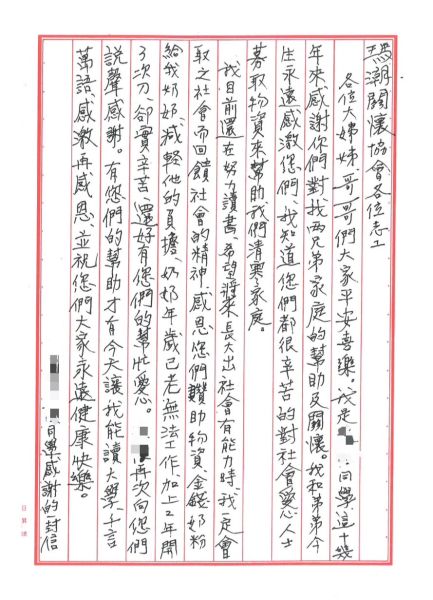 瑪潮關懷協會各位志工
各位大姊姊哥哥們大家平安喜樂。我是 同學這十幾
年來感謝你們對我兩兄弟家庭的幫助及關懷。我和弟弟今
生永遠感激您們、我知道您們都很辛苦的對社會愛心人士
募取物資來幫助我們清寒家庭。
我目前還在努力讀書、希望將來長大出社會有能力時、我一定會
取之社會而回饋社會的精神、感恩您們贊助物資金錢奶粉
給我奶奶、減輕他的負擔、奶奶年歲已老無法工作、加上2年開
了次刀、卻實辛苦、還好有您們的幫忙愛心。 再次向您們
說聲感謝。有您們的幫助才有今天讓我能讀大學、千言
萬語、感激再感恩、並祝您們大家永遠健康快樂。
同學感謝的一封信